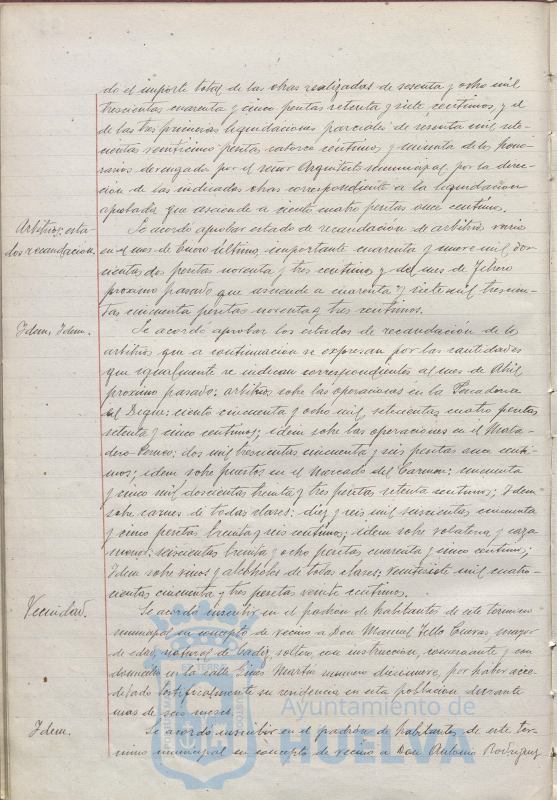 do el importe total de las obras realizadas de sesenta y ocho mil
trescientas cuarenta y cinco pesetas setenta y siete centimos, y el
de las tres primeras liquidaciones parciales de sesenta mil sete-
cientas veinticinco pesetas catorce centimos, y minuta de los hono-
rarios devengada por el señor Arquitecto municipal por la direc-
cion de las indicadas obras correspondiente a la liquidacion
aprobada que asciende a ciento cuatro pesetas once centimos.
Arbitrios; esta-
dos recaudacion.
Se acordo aprobar estado de recaudacion de arbitrios varios
en el mes de Enero ultimo, importante cuarenta y nueve mil dos-
cientas dos pesetas noventa y tres centimos y del mes de Febrero
proximo pasado que asciende a cuarenta y siete mil trescien-
tas cincuenta pesetas noventa y tres centimos.
Idem, Idem.
Se acordo aprobar los estados de recaudación de los
arbitrios que a continuacion se expresan por las cantidades
que igualmente se indican correspondientes al mes de Abril
proximo pasado: arbitrios sobre las operaciones en la Pescaderia
del Dique: ciento cincuenta y ocho mil, setecientas cuatro pesetas
setenta y cinco centimos; idem sobre las operaciones en el Mata-
dero: dos mil trescientas cincuenta y seis pesetas once centi-
mos; idem sobre puestos en el Mercado del Carmen: cincuenta
y cinco mil doscientas treinta y tres pesetas setenta centimos; Idem
sobre carnes de todas clases: diez y seis mil seiscientas cincuenta
y cinco pesetas treinta y seis centimos; idem sobre volateria y caza
menor: seiscientas treinta y ocho pesetas cuarenta y cinco centimos;
Idem sobre vinos y alcoholes de todas clases: veintisiete mil cuatro-
cientas cincuenta y tres pesetas veinte centimos.
Vecindad.
Se acordo inscribir en el padron de habitantes de este termino
municipal en concepto de vecino a Don Manuel Tello Cuevas mayor
de edad, natural de Cadiz, soltero, con instruccion, comerciante y con
domicilio en la calle Ginés Martín numero diecinueve, por haber acre-
ditado testificalmente su residencia en esta poblacion durante
mas de seis meses.
Idem.
Se acordo inscribir en el padrón de habitantes de este ter-
mino municipal en concepto de vecino a Don Antonio Rodriguez
Ayuntamiento de
HUELVA